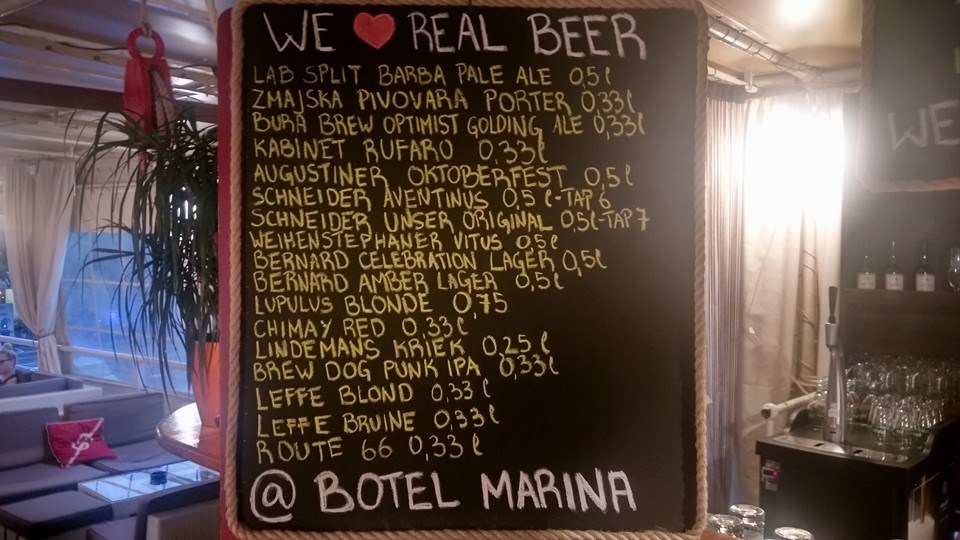 WE ❤ REAL BEER
LAB SPLIT BARBA PALE ALE 0,5ℓ
ZMAJSKA PIVOVARA PORTER 0,33ℓ
BURA BREW OPTIMIST GOLDING ALE 0,33ℓ
KABINET RUFARO 0,33ℓ
AUGUSTINER OKTOBERFEST 0,5ℓ
SCHNEIDER AVENTINUS 0,5ℓ-TAP 6
SCHNEIDER UNSER ORIGINAL 0,5ℓ-TAP 7
WEIHENSTEPHANER VITUS 0,5ℓ
BERNARD CELEBRATION LAGER 0,5ℓ
BERNARD AMBER LAGER 0,5ℓ
LUPULUS BLONDE 0,75
CHIMAY RED 0,33ℓ
LINDEMANS KRIEK 0,25ℓ
BREW DOG PUNK IPA 0,33ℓ
LEFFE BLOND 0,33ℓ
LEFFE BRUINE 0,33ℓ
ROUTE 66 0,33ℓ
@ BOTEL MARINA
WE